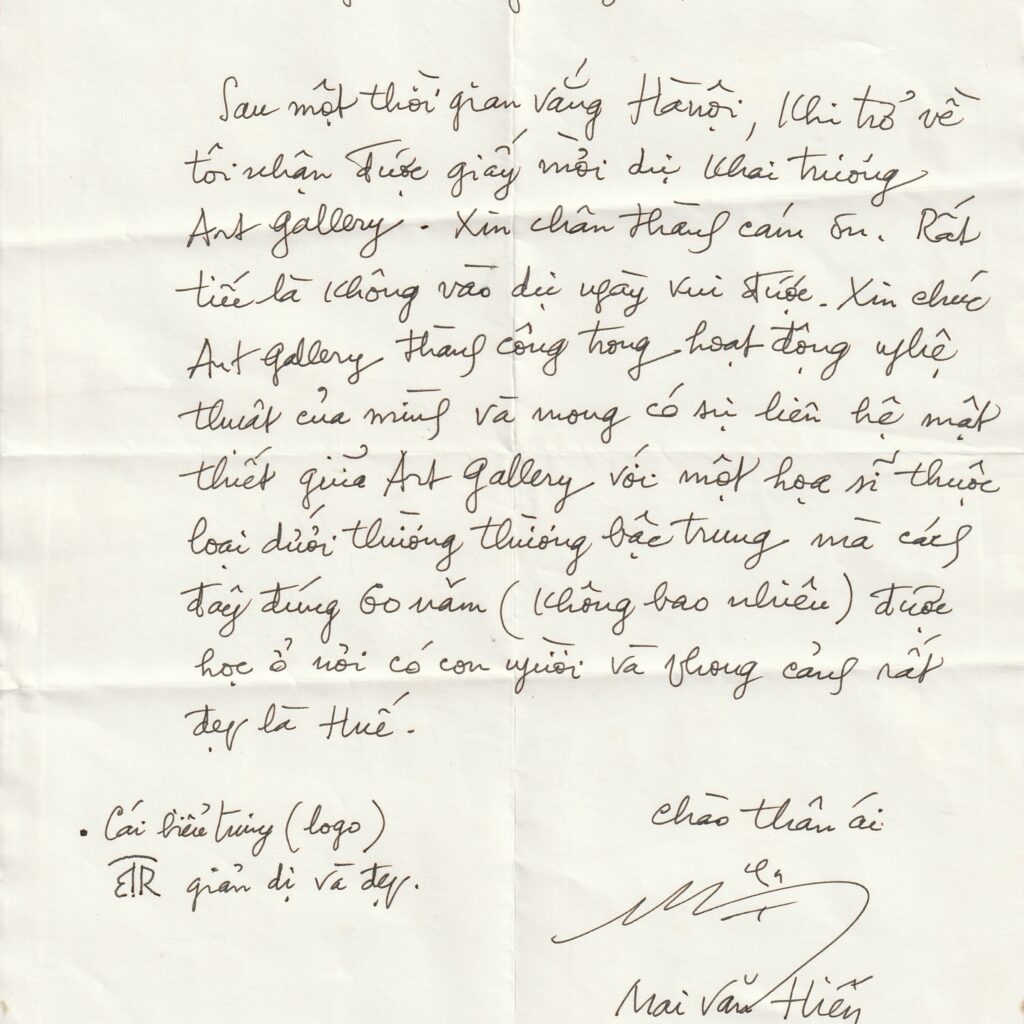 Sau một thời gian vắng Hànội, khi trở về
tôi nhận được giấy mời dự khai trương
Art Gallery. Xin chân thành cám ơn. Rất
tiếc là không vào dự ngày vui được. Xin chúc
Art Gallery thành công trong hoạt động nghệ
thuật của mình và mong có sự liên hệ mật
thiết giữa Art Gallery với một họa sĩ thuộc
loại dưới thường thường bậc trung mà cách
đây đúng 60 năm (không bao nhiêu) được
học ở nơi có con người và phong cảnh rất
đẹp là Huế.
• Cái biểu trưng (logo)
giản dị và đẹp.
Chào thân ái
Mai Văn Hiến